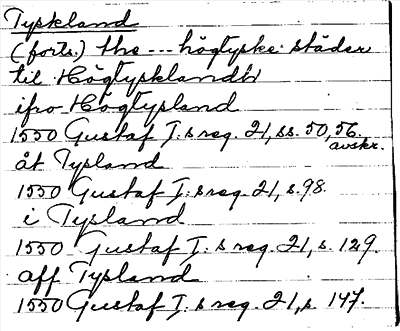 Tyskland
(forts.) the --- högtyske städer
til Högtysklandh
ifro Högtysland
1550 Gustaf I:s reg. 21, ss. 50, 56.
avskr.
åt Tysland
1550 Gustaf I:s reg. 21, s. 98.
i Tysland
1550 Gustaf I:s reg. 21, s. 129.
aff Tysland
1550 Gustaf I:s reg. 21, s. 147.